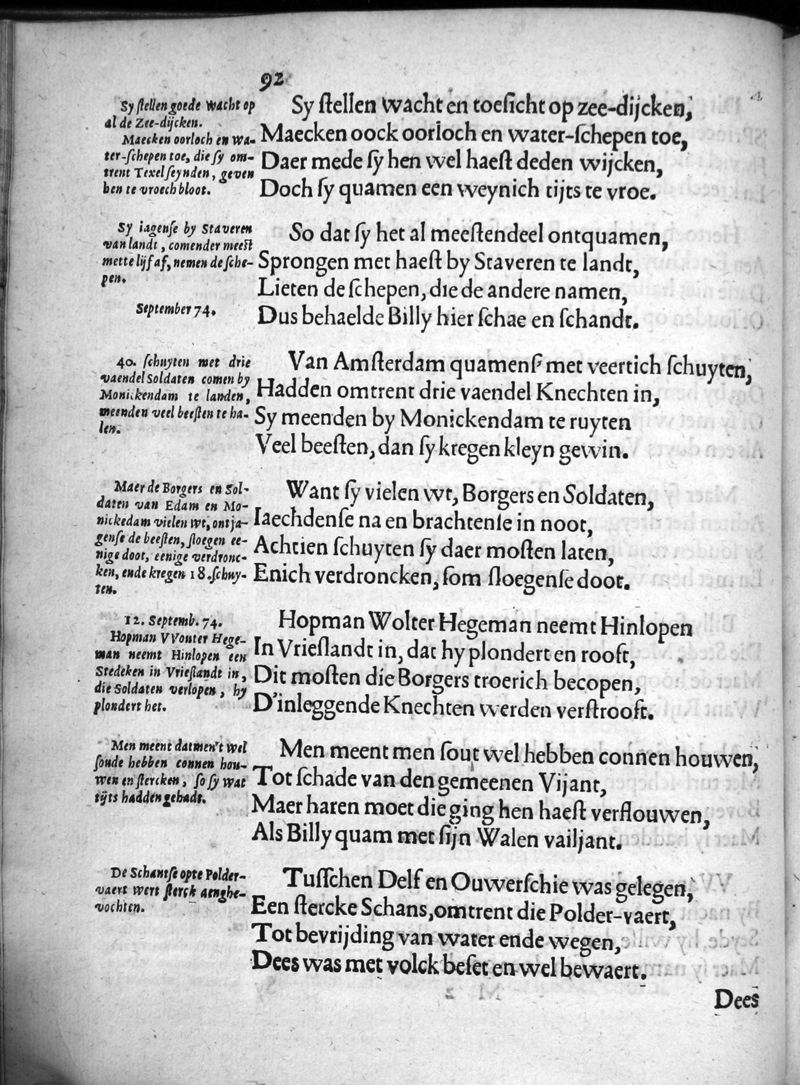 92
Sy ſtellen goede Wacht op
al de Zee-dijcken.
Maecken oorloch en wa-
ter-ſchepen toe, die ſy om-
trent Texel ſeynden, geven
hen te vroech bloot.
Sy ſtellen Wacht en toeſicht op zee-dijcken,
Maecken oock oorloch en water-ſchepen toe,
Daer mede ſy hen wel haeſt deden wijcken,
Doch ſy quamen een weynich tijts te vroe.
Sy iagenſe by Staveren
van landt, comender meeſt
mette lijf af, nemen de ſche-
pen.
September 74.
So dat ſy het al meeſtendeel ontquamen,
Sprongen met haeſt by Staveren te landt,
Lieten de ſchepen, die de andere namen,
Dus behaelde Billy hier ſchae en ſchandt.
40. ſchuyten met drie
vaendel soldaten comen by
Monickendam te landen,
meenden veel beeſten te ha-
len.
Van Amſterdam quamenſ' met veertich ſchuyten,
Hadden omtrent drie vaendel Knechten in,
Sy meenden by Monickendam te ruyten
Veel beeſten, dan ſy kregen kleyn gewin.
Maer de Borgers en Sol-
daten van Edam en Mo-
nickedam vielen wt, ontja-
genſe de beeſten, ſloegen ee-
nige doot, eenige verdronc-
ken, ende kregen 18. ſchuy-
ten.
Want ſy vielen wt, Borgers en Soldaten,
Iaechdenſe na en brachtenſe in noot,
Achtien ſchuyten ſy daer moſten laten,
Enich verdroncken, ſom ſloegenſe doot.
12. Septemb. 74.
Hopman VVouter Hege-
man neemt Hinlopen een
Stedeken in Vrieſlandt in,
die Soldaten verlopen, hy
plondert het.
Hopman Wolter Hegeman neemt Hinlopen
In Vrieſlandt in, dat hy plondert en rooft,
Dit moſten die Borgers troerich becopen,
D'inleggende Knechten werden verſtrooft.
Men meent datmen't wel
ſoude hebben connen hou-
wen en ſtercken, ſo ſy wat
tijts hadden gehadt.
Men meent men ſout wel hebben connen houwen,
Tot ſchade van den gemeenen Vijant,
Maer haren moet die ging hen haeſt verflouwen,
Als Billy quam met ſijn Walen vailjant.
De Schantſe opte Polder-
vaert wert ſterck aenghe-
vochten.
Tuſſchen Delf en Ouwerſchie was gelegen,
Een ſtercke Schans, omtrent die Polder-vaert,
Tot bevrijding van water ende wegen,
Dees was met volck beſet en wel bewaert.
Dees